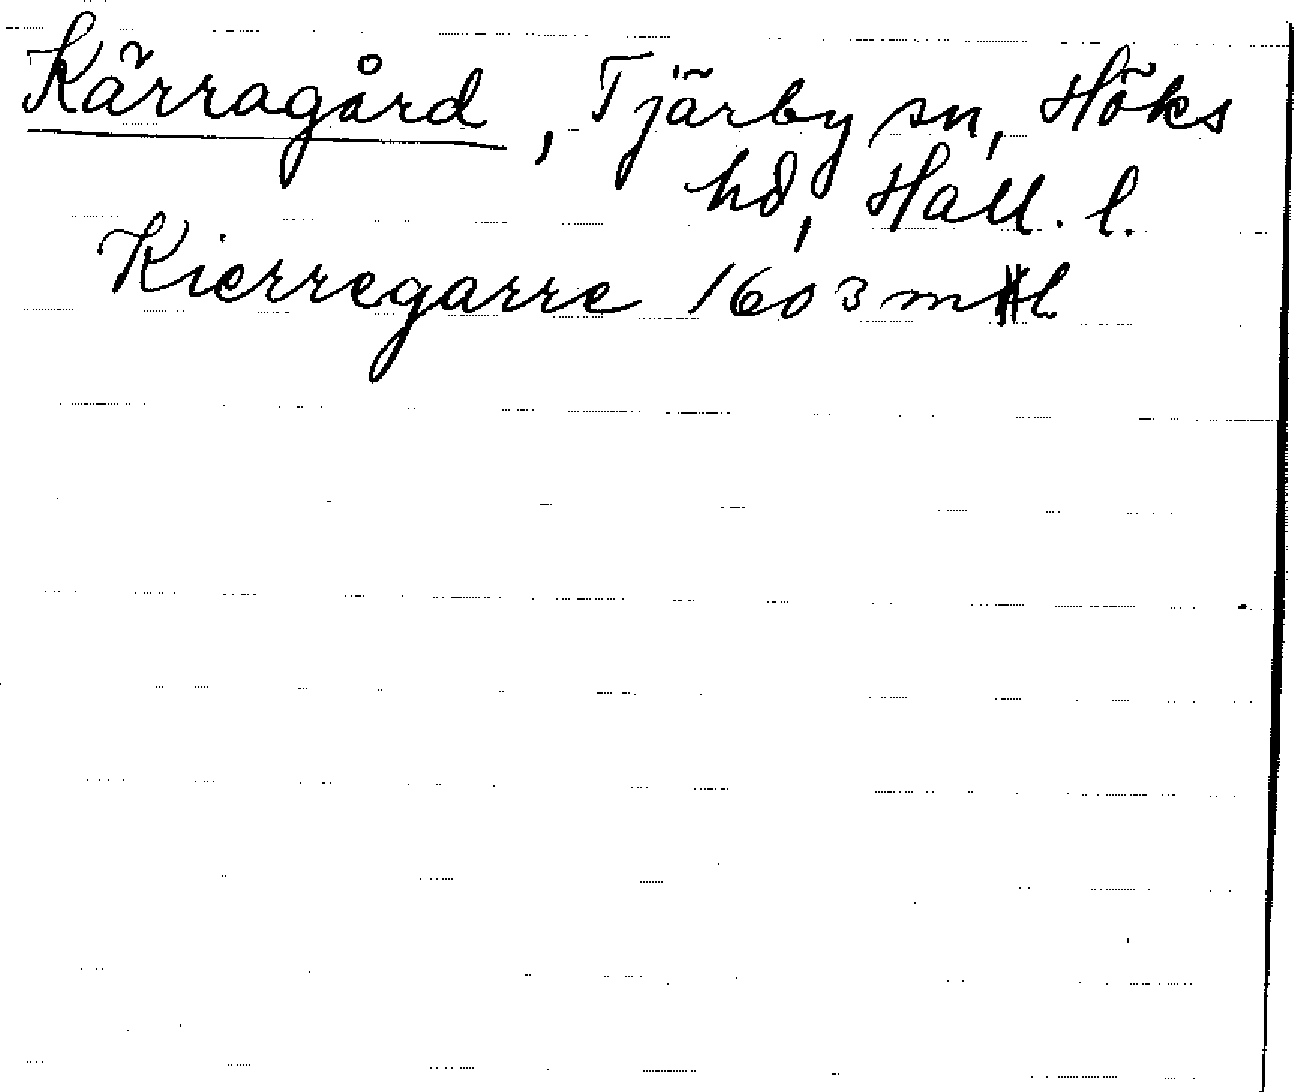 Kärragård, Tjärby sn, Höks
hd, Hall. l.
Kierregarre 1603